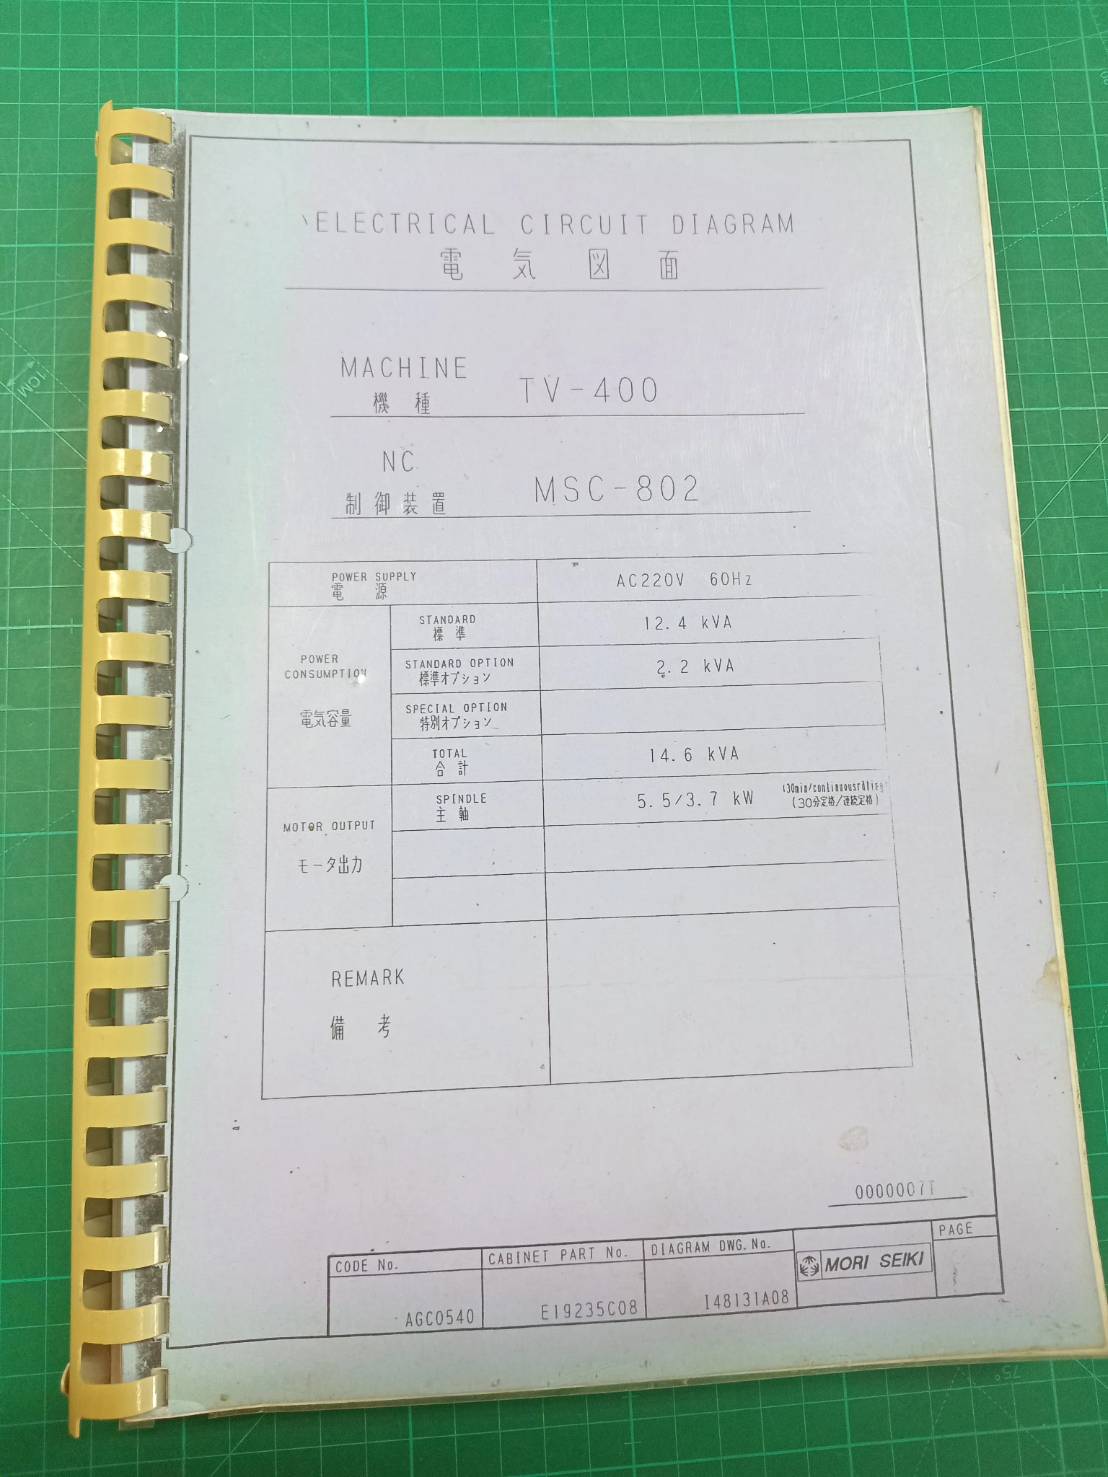 ELECTRICAL CIRCUIT DIAGRAM
電気図面
MACHINE
機種
TV-400
NC
制御装置
MSC-802
POWER SUPPLY
電源
AC220V 60Hz
POWER
CONSUMPTION
電気容量
STANDARD
標準
12.4 kVA
STANDARD OPTION
標準オプション
2.2 kVA
SPECIAL OPTION
特別オプション
TOTAL
合計
14.6 kVA
MOTOR OUTPUT
モータ出力
SPINDLE
主軸
5.5/3.7 kW
(30min/continousrating)
(30分定格/連続定格)
REMARK
備考
CODE No.
AGC0540
CABINET PART No.
E19235C08
DIAGRAM DWG. No.
I48131A08
MORI SEIKI
PAGE
1CM
75°